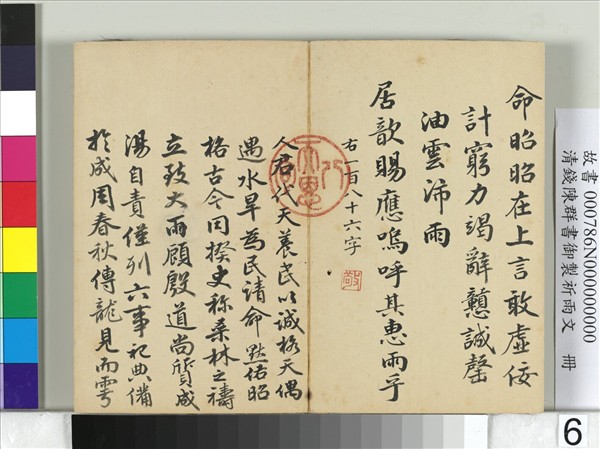 命昭昭在上言敢虛佞
計窮力竭辭戇誠罄
油雲沛雨
居歆賜應嗚呼其惠雨乎
右一百八十六字
敬
人君代天養民以誠格天偶
遇水旱為民請命默佑昭
格古今同揆史稱桑林之禱
立致大雨顧殷道尚質成
湯自責僅列六事祀典備
於成周春秋傳龍見而雩
故書 000786N000000000
清錢陳群書御製祈雨文 冊
6